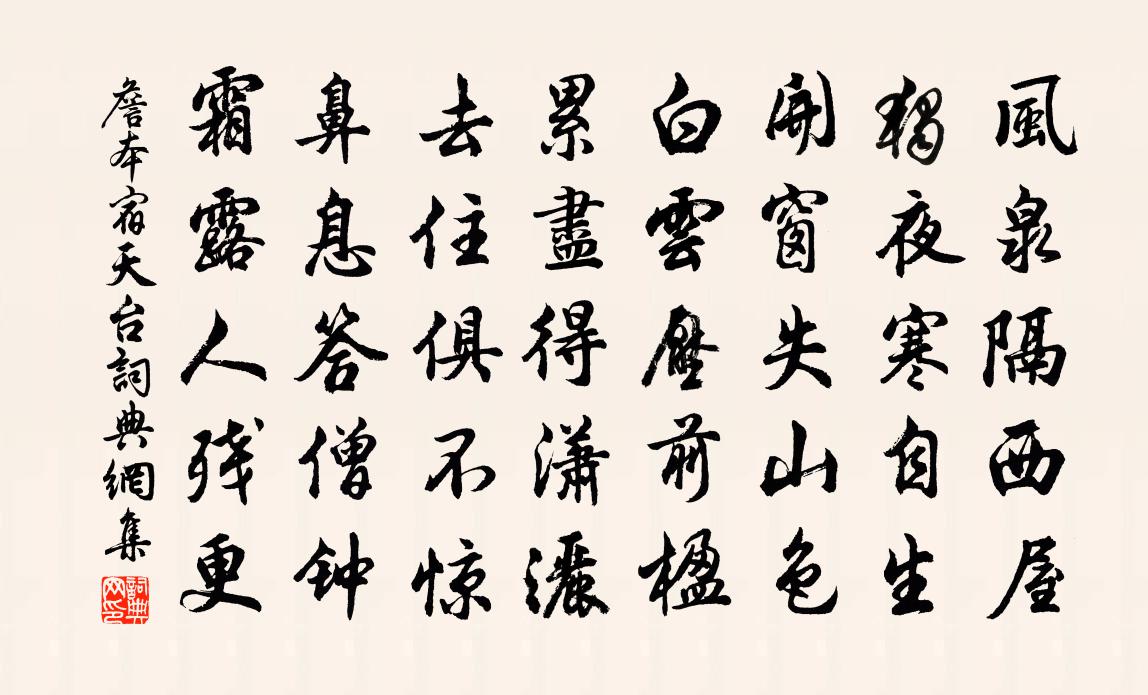 風泉隔西屋
獨夜寒自生
開窗失山色
白雲壓前楹
累盡得瀟灑
去住俱不惊
鼻息答僧钟
霜露人残更
詹本宿天台詞典網集
詞典网印